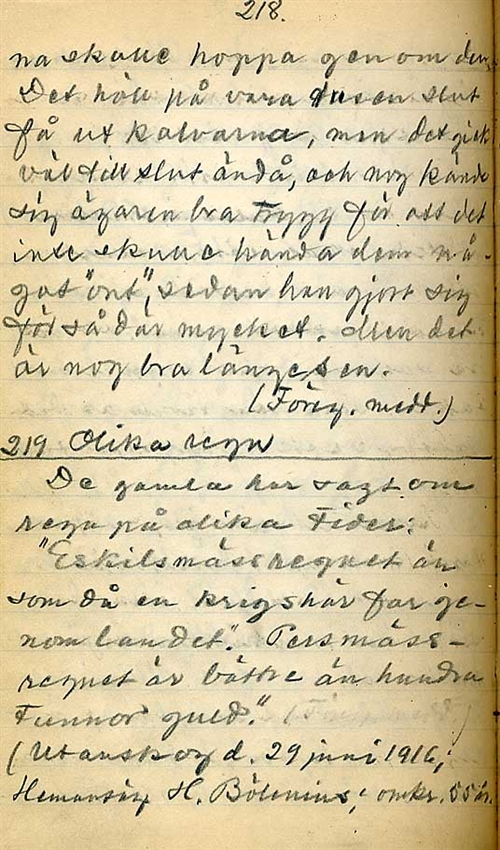 218.
na skulle hoppa genom den.
Det höll på vara tusen slut
få ut kalvarna, men det gick
väl till slut ändå, och nog kände
sig ägaren bra trygg för att det
inte skulle hända dem nå-
got "ont", sedan han gjort sig
för så där mycket. Men det
är nog bra länge sen.
(Föreg. medd.)
219 Olika regn
De gamla har sagt om
regn på olika tider:
"Eskilsmässregnet är
som då en krigshär far ge-
nom landet." "Persmäss-
regnet är bättre än hundra
tunnor guld." (Föreg. medd.)
(Utanskog d. 29 juni 1916;
H. Bölenius; omkr. 55 år.